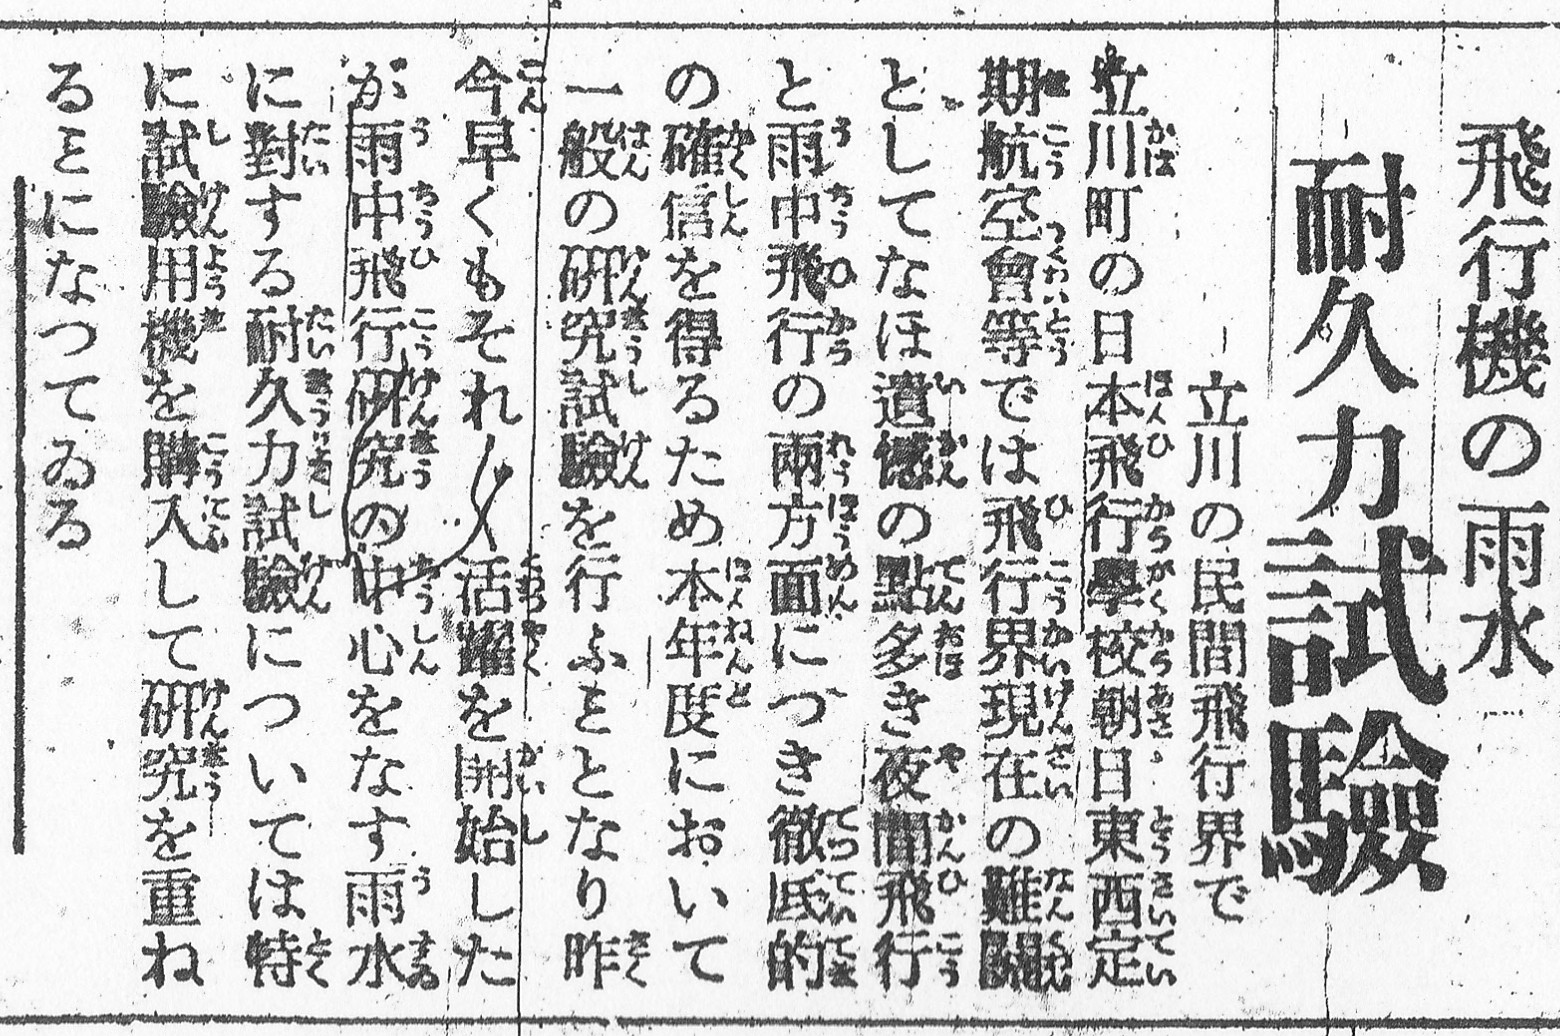 飛行機の雨水
耐久力試驗
立川の民間飛行界で
立川町の日本飛行學校朝日東西定
期航空會等では飛行界現在の難關
としてなほ遺憾の點多き夜間飛行
と雨中飛行の兩方面につき徹底的
の確信を得るため本年度において
一般の硏究試驗を行ふことなり昨
今早くもそれ〴〵活躍を開始した
が雨中飛行硏究の中心をなす雨水
に對する耐久力試驗については特
に試驗用機を購入して硏究を重ね
ることになつてゐる